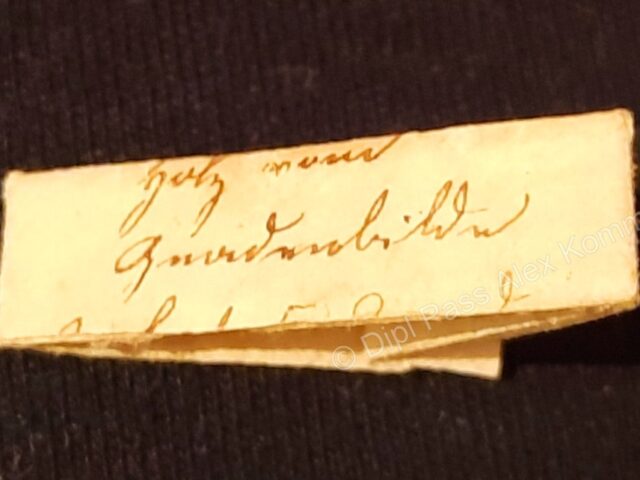 Holz vom
Gnadenbilde
© Dipl Pass Alex Komm